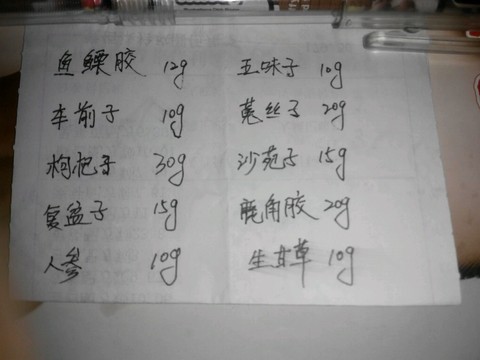 鱼鳔胶 12g 五味子 10g
车前子 10g 菟丝子 20g
枸杞子 30g 沙苑子 15g
复盆子 15g 鹿角胶 20g
人参 10g 生甘草 10g